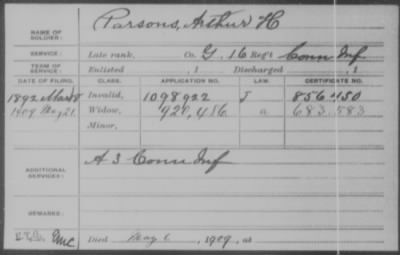 NAME OF SOLDIER: Parsons, Arthur H
SERVICE: Late rank, Co. G, 16 Reg't Conn Inf
TERM OF SERVICE: Enlisted , 1 Discharged , 1
DATE OF FILING. CLASS. APPLICATION NO. LAW. CERTIFICATE NO.
1892 Invalid, 1098922 J 856,450
1909 May 21 Widow, 920,486 a 683,583
Minor,
ADDITIONAL SERVICES: A 3 Conn Inf
REMARKS:
Died May 6, 1909, at